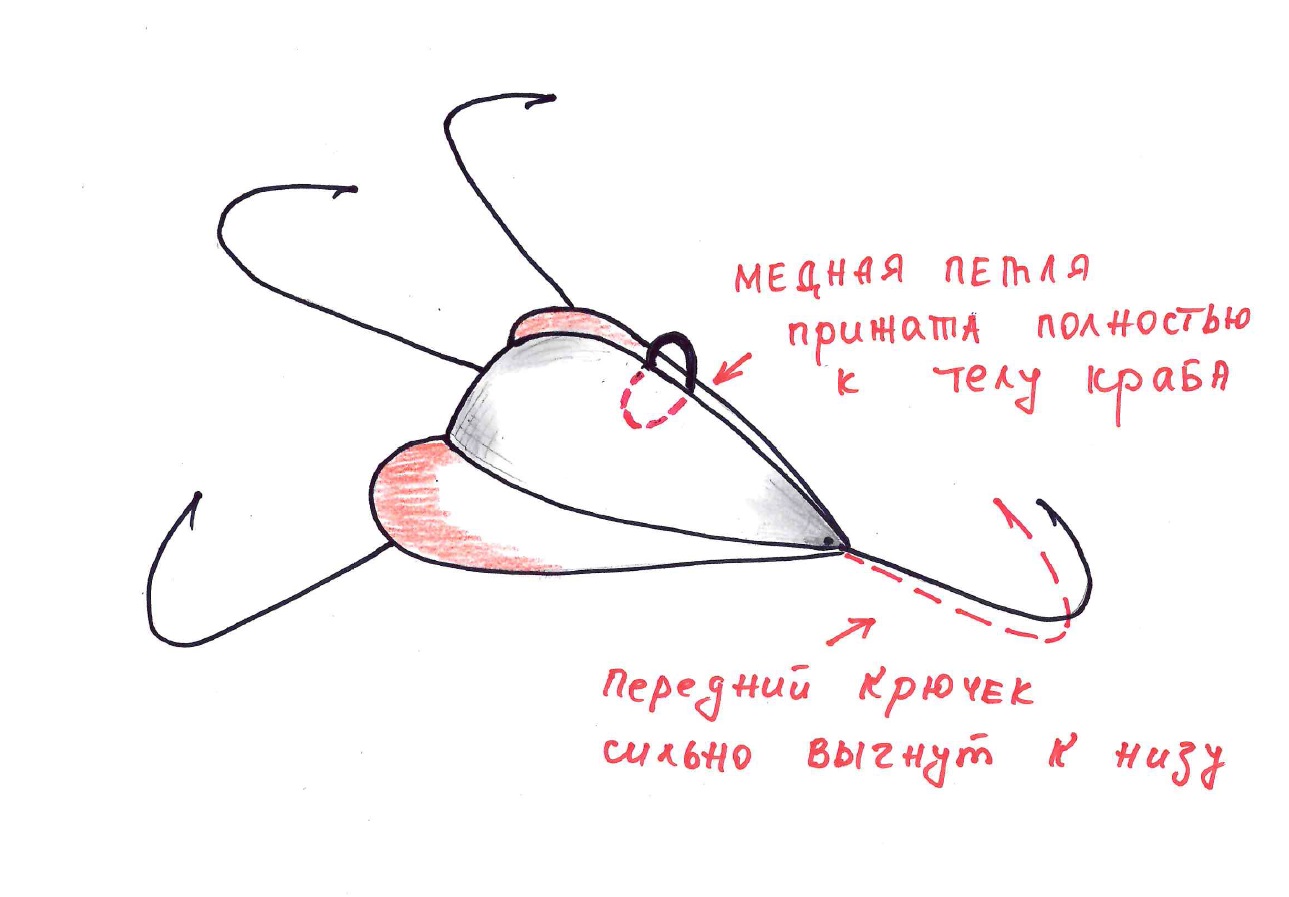 МЕДНАЯ ПЕТЛЯ
ПРИЖАТА ПОЛНОСТЬЮ
К ТЕЛУ КРАБА
ПЕРЕДНИЙ КРЮЧЕК
СИЛЬНО ВЫГНУТ К НИЗУ